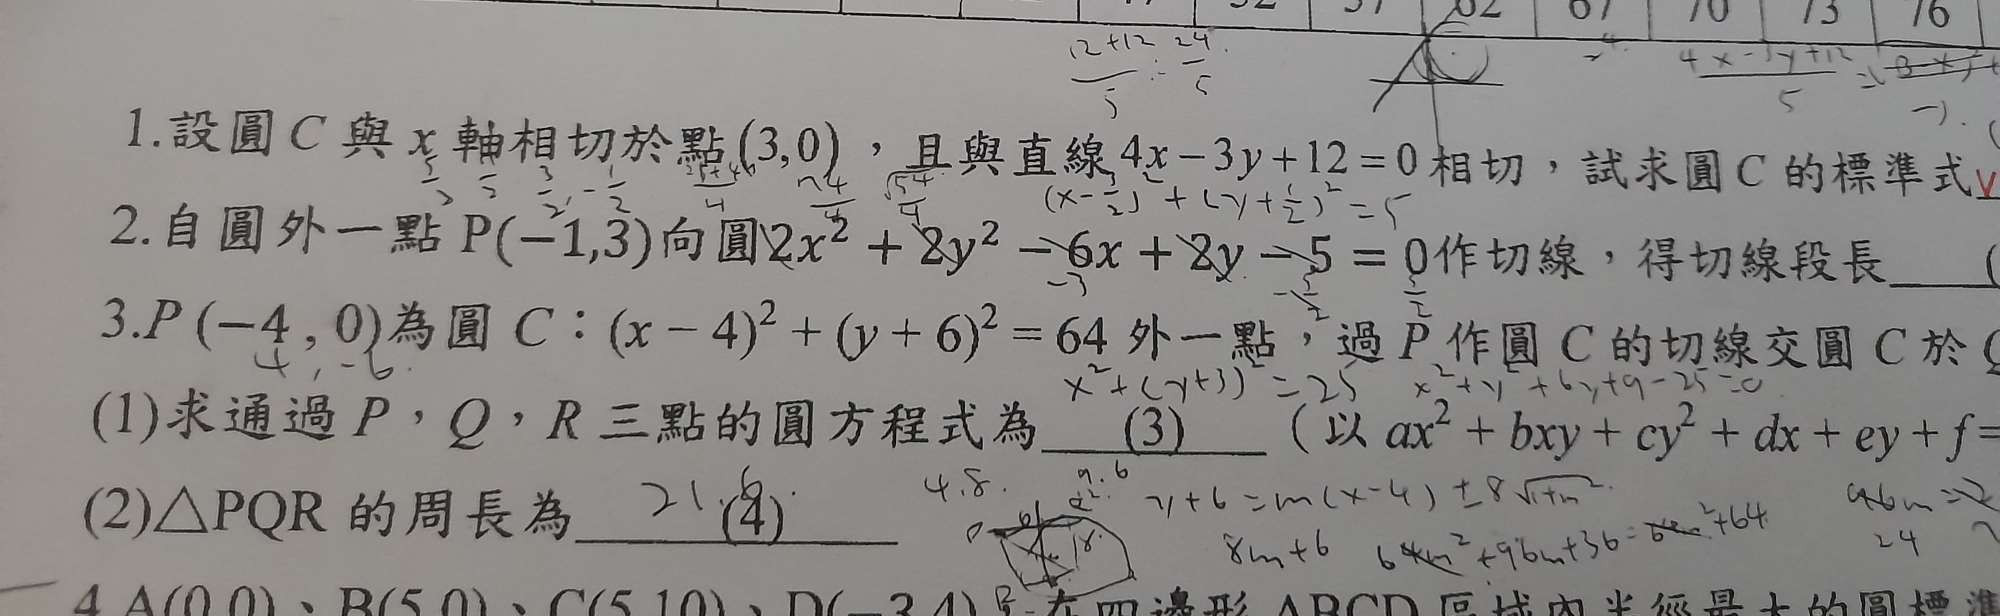 52 57 62 67 70 73 76
12+12 24
5 5
4x-3y+12
5
1.設圓 C 與 x 軸相切於點(3,0)，且與直線 4x－3y+12＝0 相切，試求圓 C 的標準式
(x-3/2)²+(y+1/2)²=5
2.自圓外一點 P(−1,3)向圓2x² + 2y² − 6x + 2y − 5 = 0作切線，得切線段長____(
-3
3.P (−4 , 0)為圓 C：(x − 4)² + (y + 6)² = 64 外一點，過 P 作圓 C 的切線交圓 C 於
4,-6
x²+(y+3)²=25 x²+y²+6y+9-25=0
(1)求通過 P，Q，R 三點的圓方程式為____(3)____（以 ax² + bxy + cy² + dx + ey + f =
4.8. 9.6
y+6=m(x-4)±8√1+m²
(2)△PQR 的周長為 21.6 (4)
8m+6 64m²+96m+36=64m²+64
24
4.A(0,0)、B(5,0)、C(5,10)、D(−3,4) 在四邊形 ABCD 區域內半徑最大的圓標準